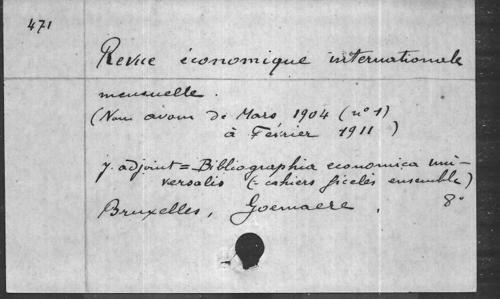 471
Revue économique internationale
mensuelle.
(Nous avons de Mars, 1904 (n° 1)
à Février 1911)
y. adjoint = Bibliographia economica uni-
versalis (= cahiers ficelés ensemble)
Bruxelles, Goemaere. 8°